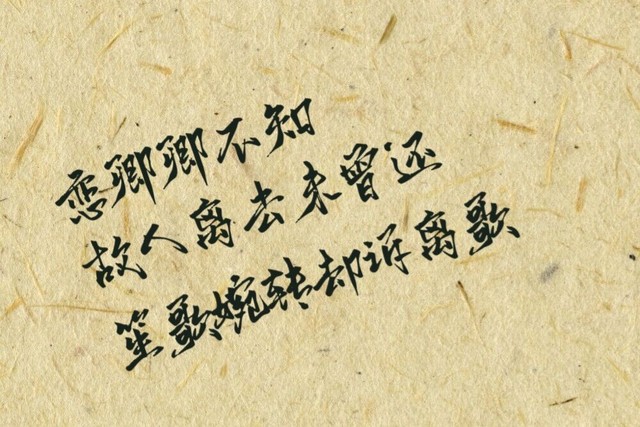 恋卿卿不知
故人离去未曾还
笙歌婉转却诉离歌